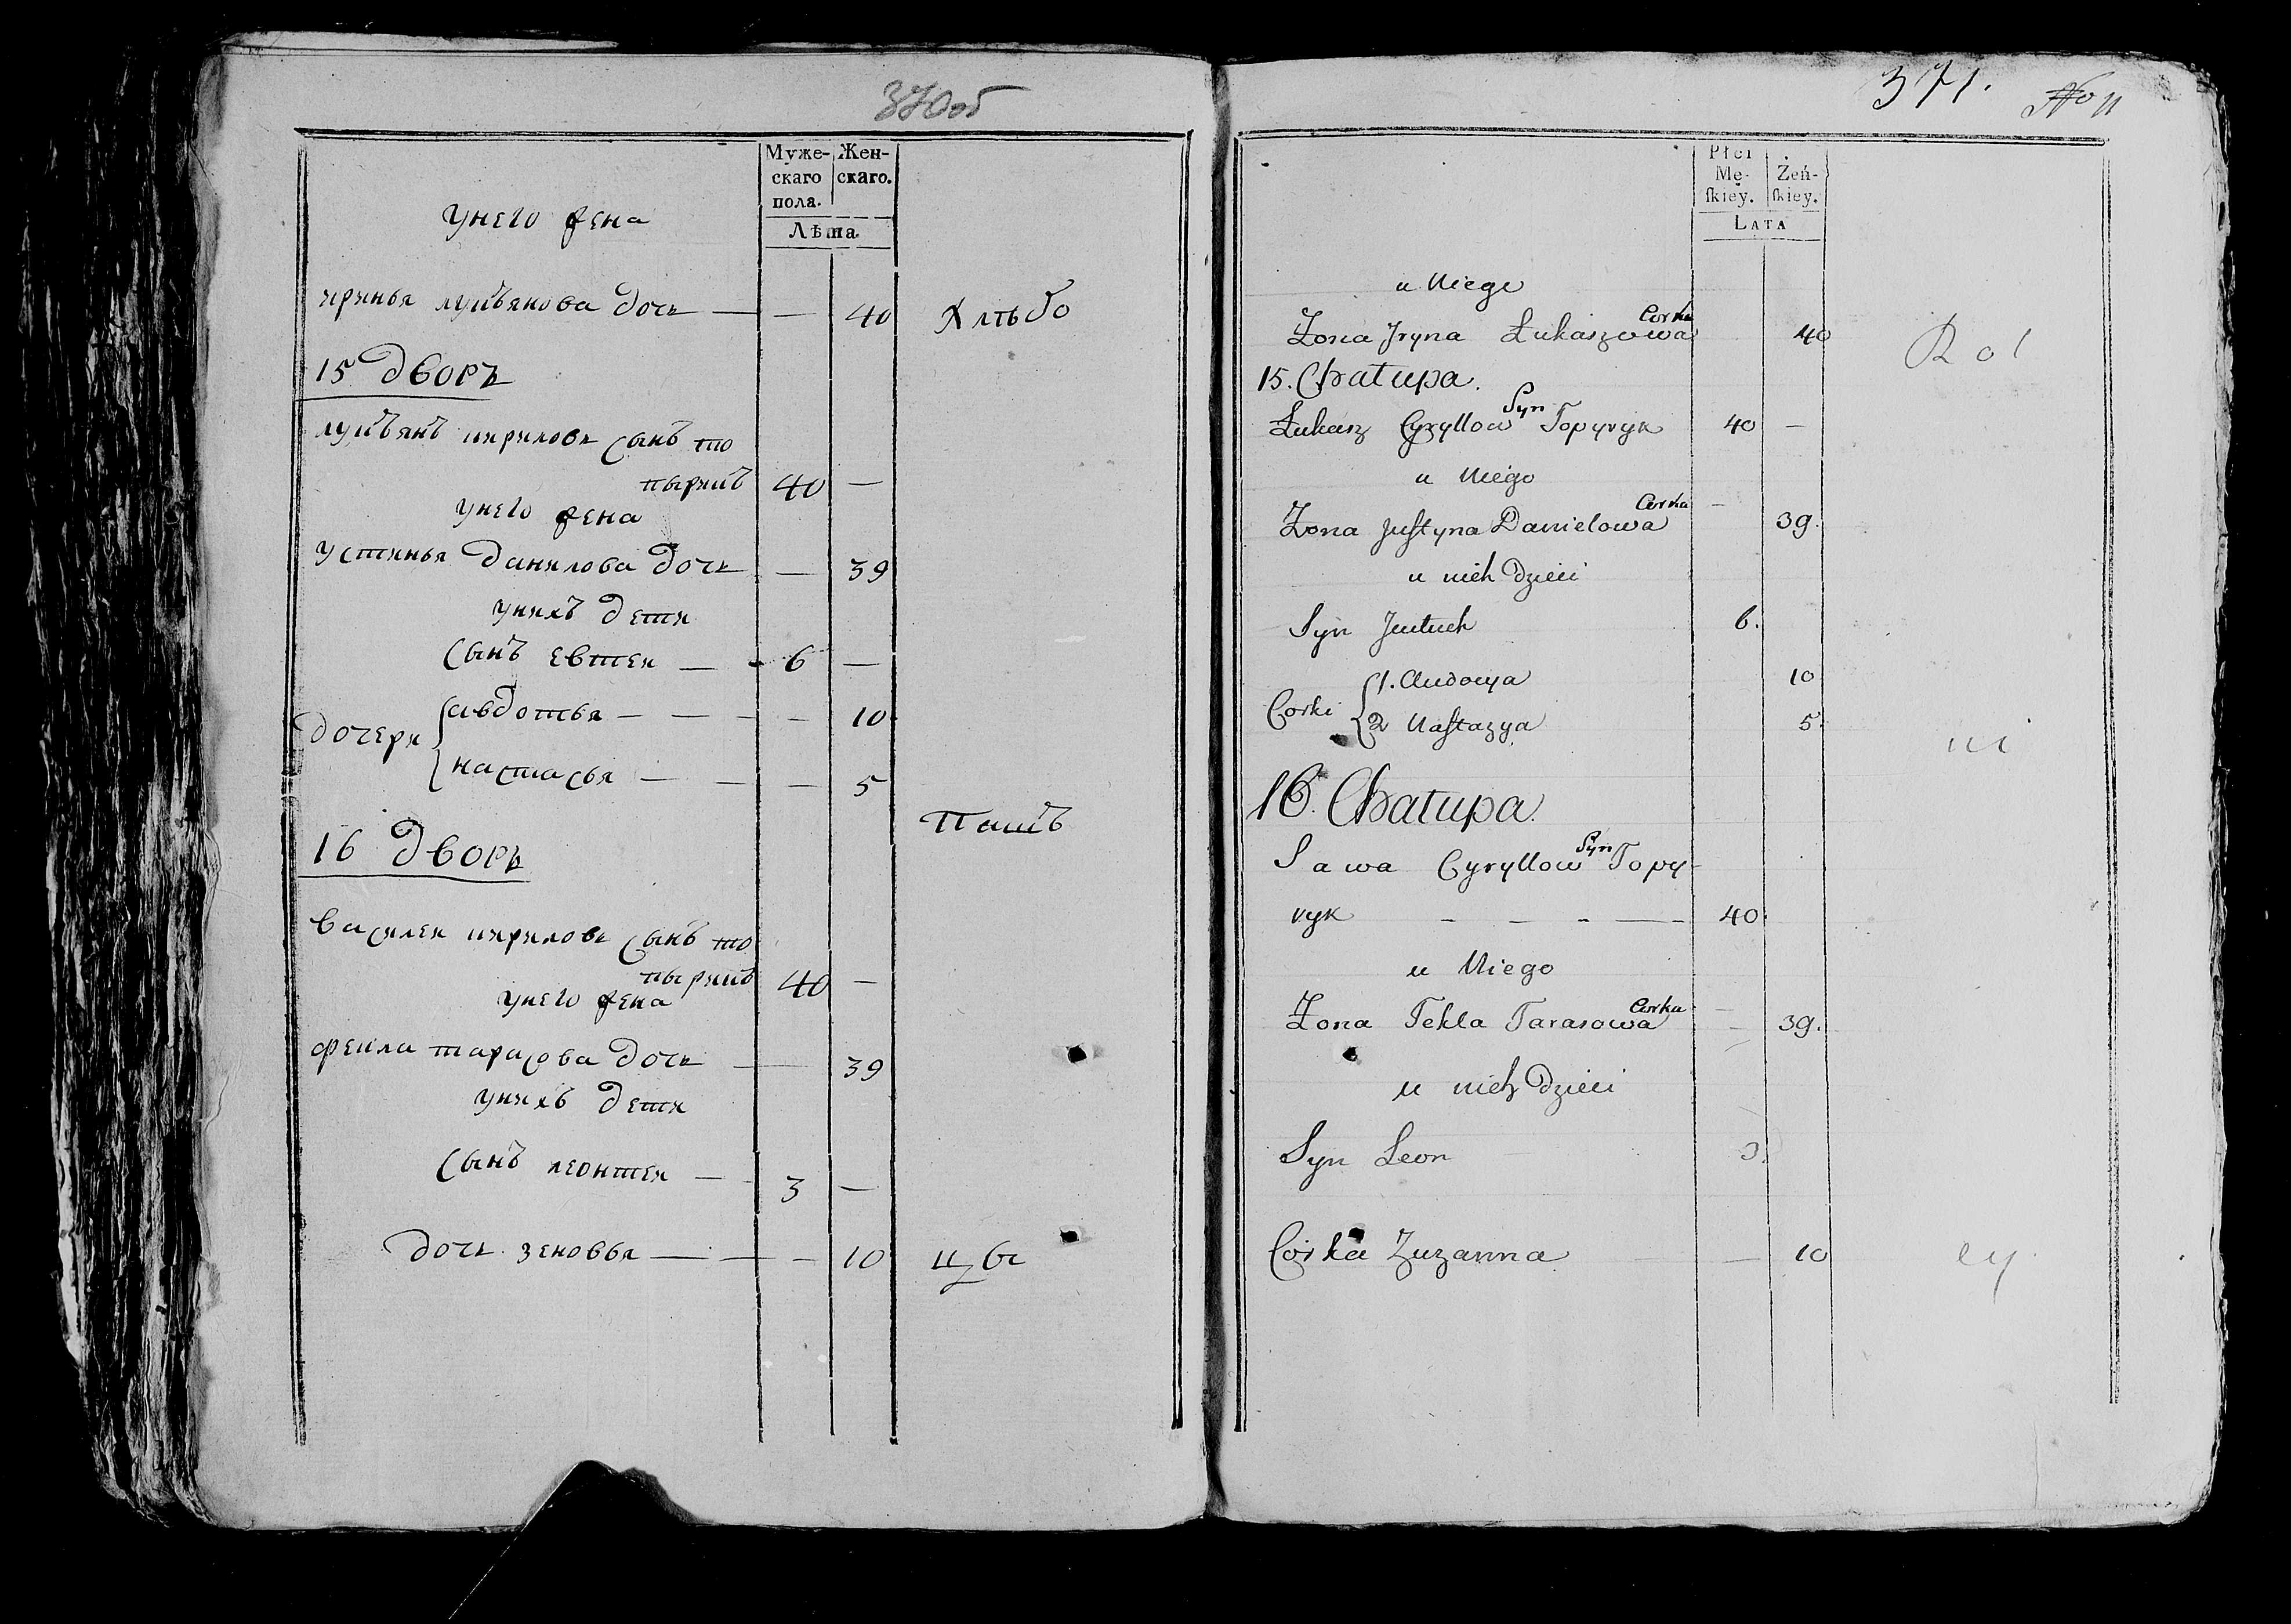 370об
Муже- Жен-
скаго скаго.
пола.
Лѣта
унего жена
иринья лукъянова дочь — — 40 Хлѣбо
15 дворъ
лукъянъ кириловъ сынъ то
пырикъ 40 —
унего жена
устинья данилова дочь — 39
унихъ дети
сынъ евтеи — 6 —
дочери { авдотья — — — 10
настасья — — — 5
Пашъ
16 дворъ
василеи кириловъ сынъ то
пырикъ 40 —
унего жена
фекла тарасова дочь — 39
унихъ дети
сынъ леонтеи — 3 —
дочь зеновья — — — 10 цы
371. No 11
Płci
Mę- Żeń-
ſkiey. ſkiey.
LATA
u Niego
Corka
Żona Jryna Łukaszowa 40 Rol
15. Chatupa.
Syn
Łukasz Cyryllow Topyryk 40 —
u Niego
Corka
Żona Juſtyna Danielowa — 39.
u nich Dzieci
Syn Jewtuch 6.
Corki { 1. Audocya 10
2 Naſtazya 5.
ni
16. Chatupa.
Syn
Sawa Cyryllow Topy-
ryk — — — — 40.
u Niego
Corka
Żona Tekla Tarasowa — 39.
u nich Dzieci
Syn Leon 3.
Corka Zuzanna — 10 cy